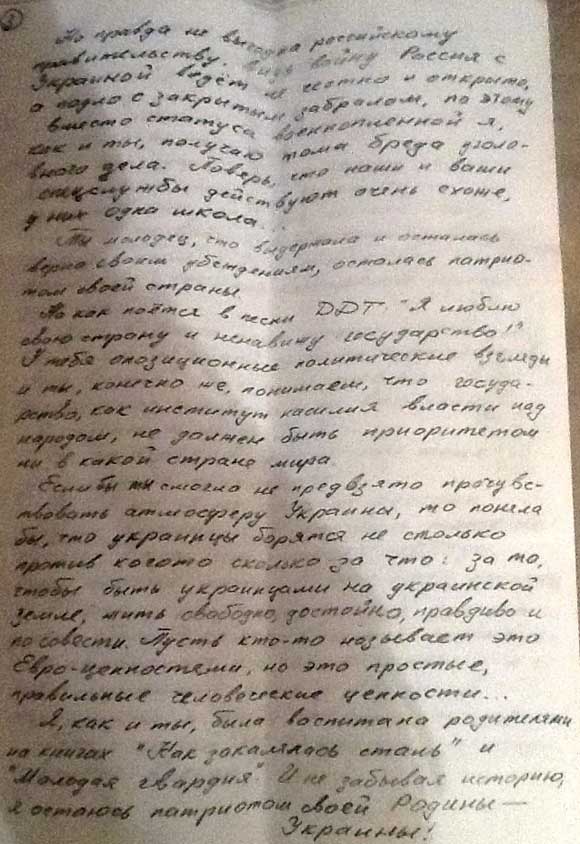 3
Но правда не выгодна российскому
правительству. Ведь войну Россия с
Украиной ведёт не честно и открыто,
а подло с закрытым забралом, по этому
вместо статуса военнопленной я,
как и ты, получаю тома бреда уголо-
вного дела. Поверь, что наши и ваши
спецслужбы действуют очень схоже,
у них одна школа...
Ты молодец, что выдержала и осталась
верна своим убеждениям, осталась патрио-
том своей страны.
Но как поётся в песни ДДТ: "Я люблю
свою страну и ненавижу государство!"
У тебя опозиционные политические взгляды
и ты, конечно же, понимаеш, что госуда-
рство, как институт насилия власти над
народом, не должен быть приоритетом
ни в какой стране мира.
Если бы ты смогла не предвзято прочувс-
твовать атмосферу Украины, то поняла
бы, что украинцы борятся не столько
против когото сколько за что: за то,
чтобы быть украинцами на украинской
земле, жить свободно, достойно, правдиво и
по совести. Пусть кто-то называет это
Евро-ценностями, но это простые,
правильные человеческие ценности...
Я, как и ты, была воспитана родителями
на книгах "Как закалялась сталь" и
"Молодая гвардия". И не забывая историю,
я остаюсь патриотом своей Родины —
Украины!